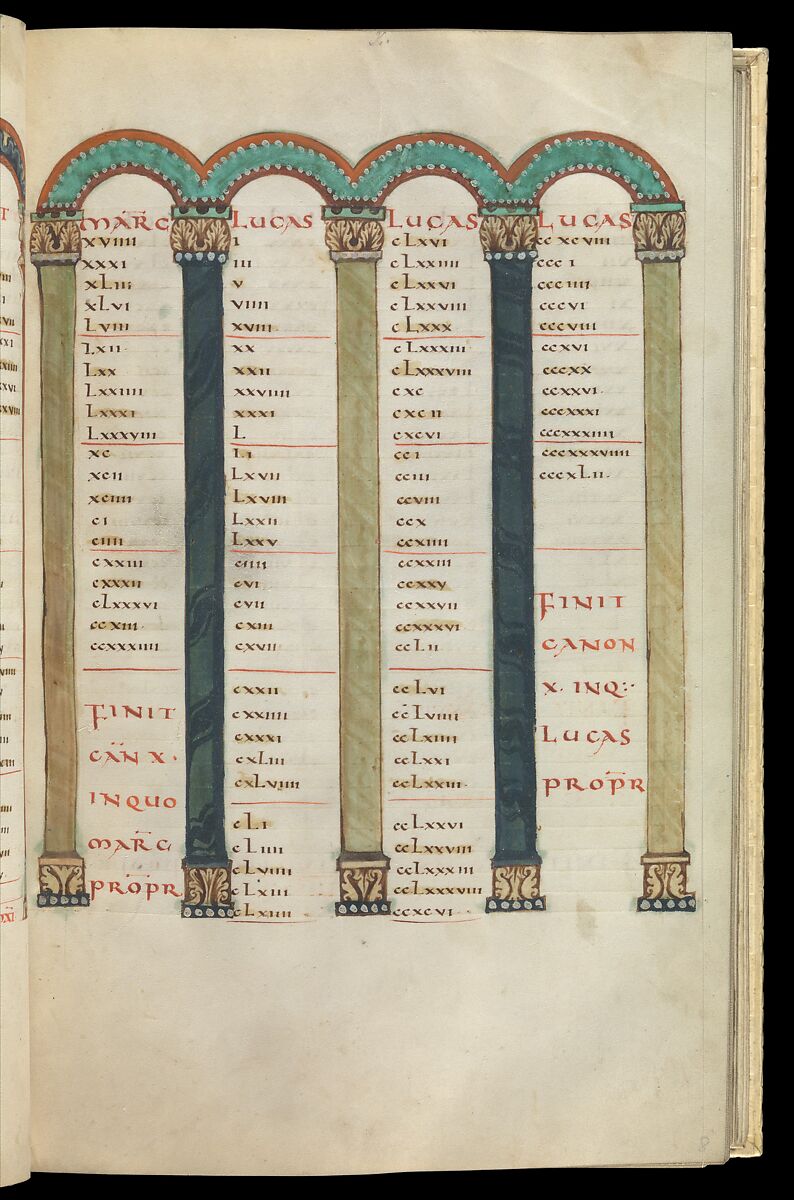 MARC
xviiii
xxxi
xLiii
xLvi
Lviii
Lxii
Lxx
Lxxiiii
Lxxxi
Lxxxviii
xc
xcii
xciiii
ci
ciiii
cxxiii
cxxxii
cLxxxvi
ccxiii
ccxxxiiii
FINIT
CAN X·
INQUO
MARC
PROPR
LUCAS
i
iii
v
viiii
xviii
xx
xxii
xxviiii
xxxi
L
Li
Lxvii
Lxviii
Lxxii
Lxxv
ciiii
cvi
cvii
cxiii
cxvii
cxxii
cxxiiii
cxxxi
cxLiii
cxLviiii
cLi
cLiiii
cLviiii
cLxiii
cLxiiii
LUCAS
cLxvi
cLxxiiii
cLxxvi
cLxxviii
cLxxx
cLxxxiii
cLxxxviii
cxc
cxcii
cxcvi
cci
cciii
ccviii
ccx
ccxiiii
ccxxiii
ccxxv
ccxxvii
ccxxxvi
ccLii
ccLvi
ccLviiii
ccLxiiii
ccLxxi
ccLxxiii
ccLxxvi
ccLxxviii
ccLxxxiii
ccLxxxviii
ccxcvi
LUCAS
ccxcviii
ccci
ccciiii
cccvi
cccviii
cccxvi
cccxx
ccxxvi
cccxxxi
cccxxxiiii
cccxxxviiii
cccxLii
FINIT
CANON
X· INQ:
LUCAS
PROPR
8